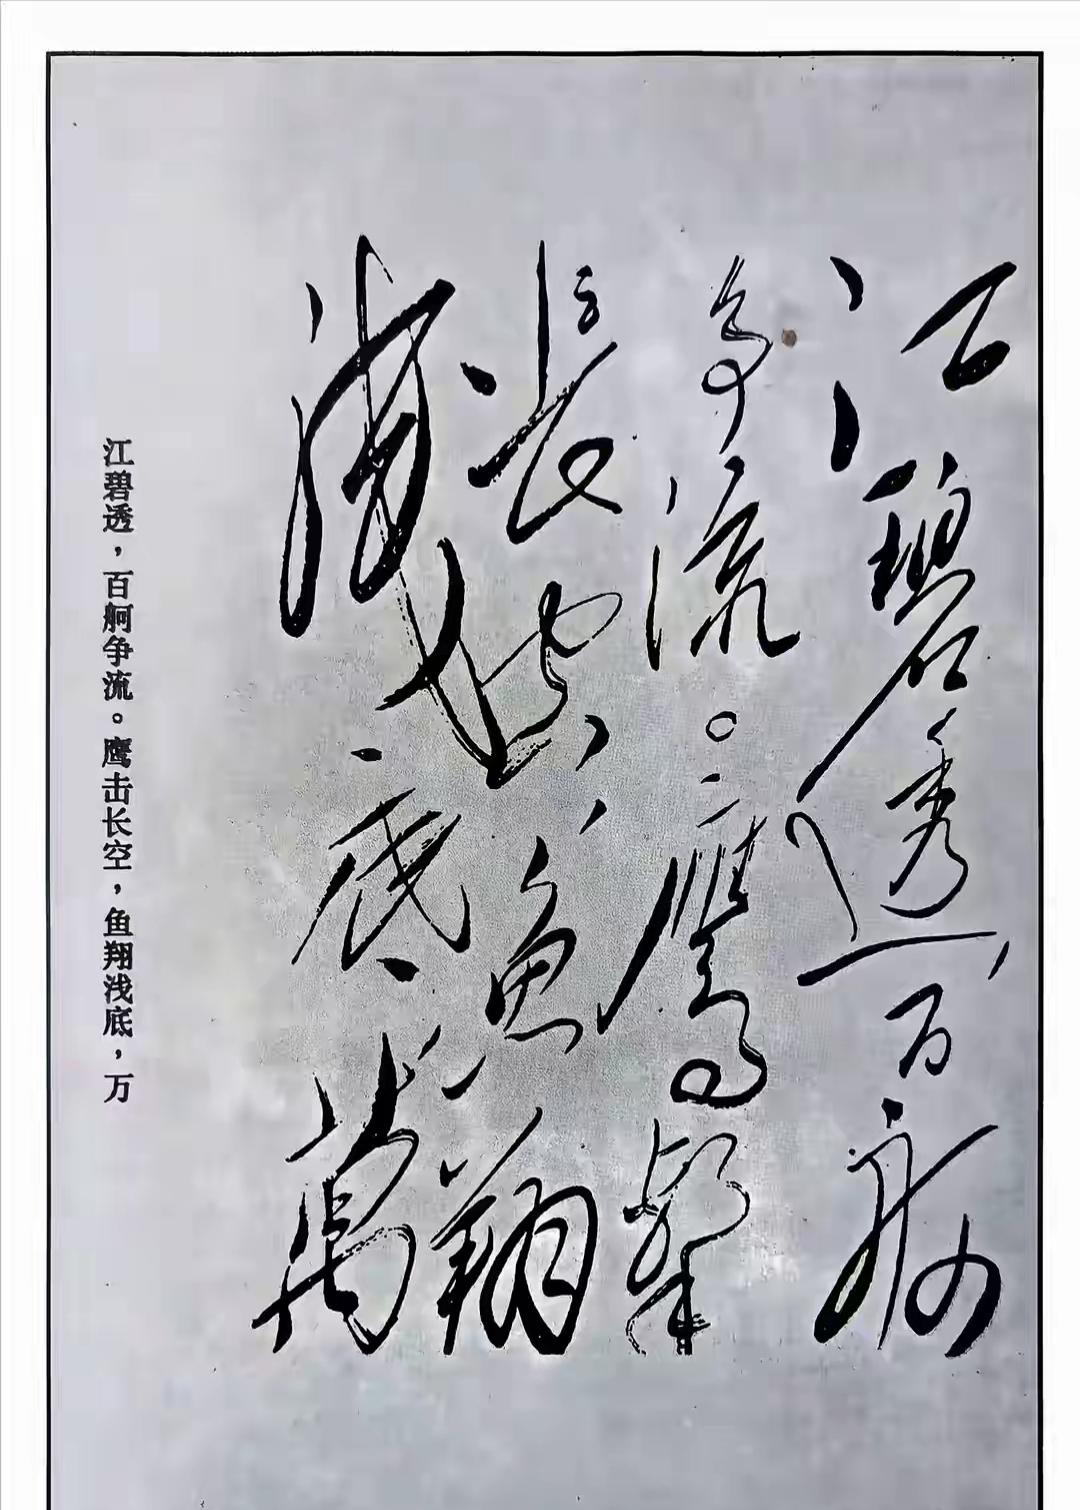 江碧透、百舸
争流。鷹擊
長空、魚翔
淺底、萬
江碧透，百舸争流。鹰击长空，鱼翔浅底，万